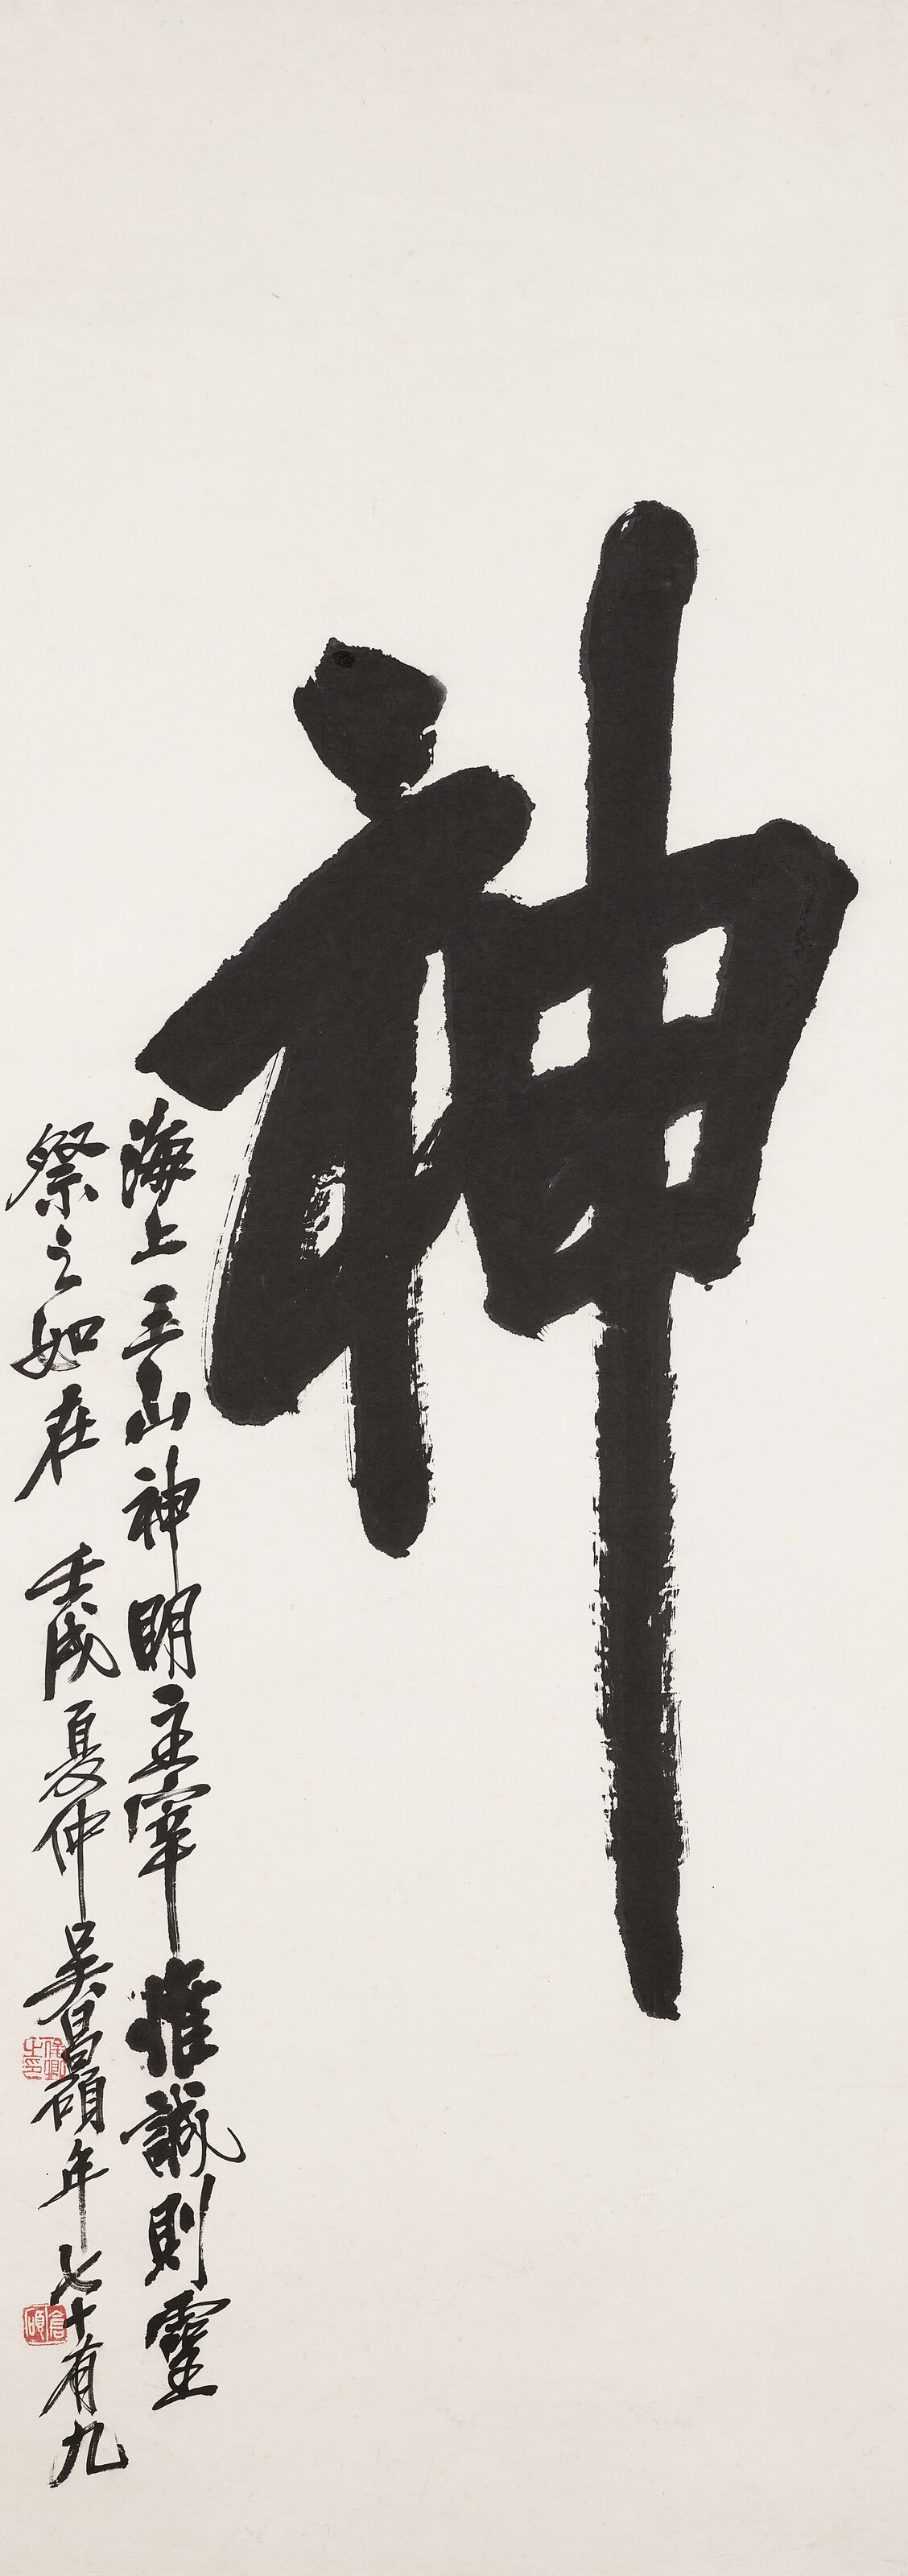 神
海上三山神明主宰惟誠則靈
祭之如在 壬戌夏仲吳昌碩年七十有九
俊卿之印
倉碩